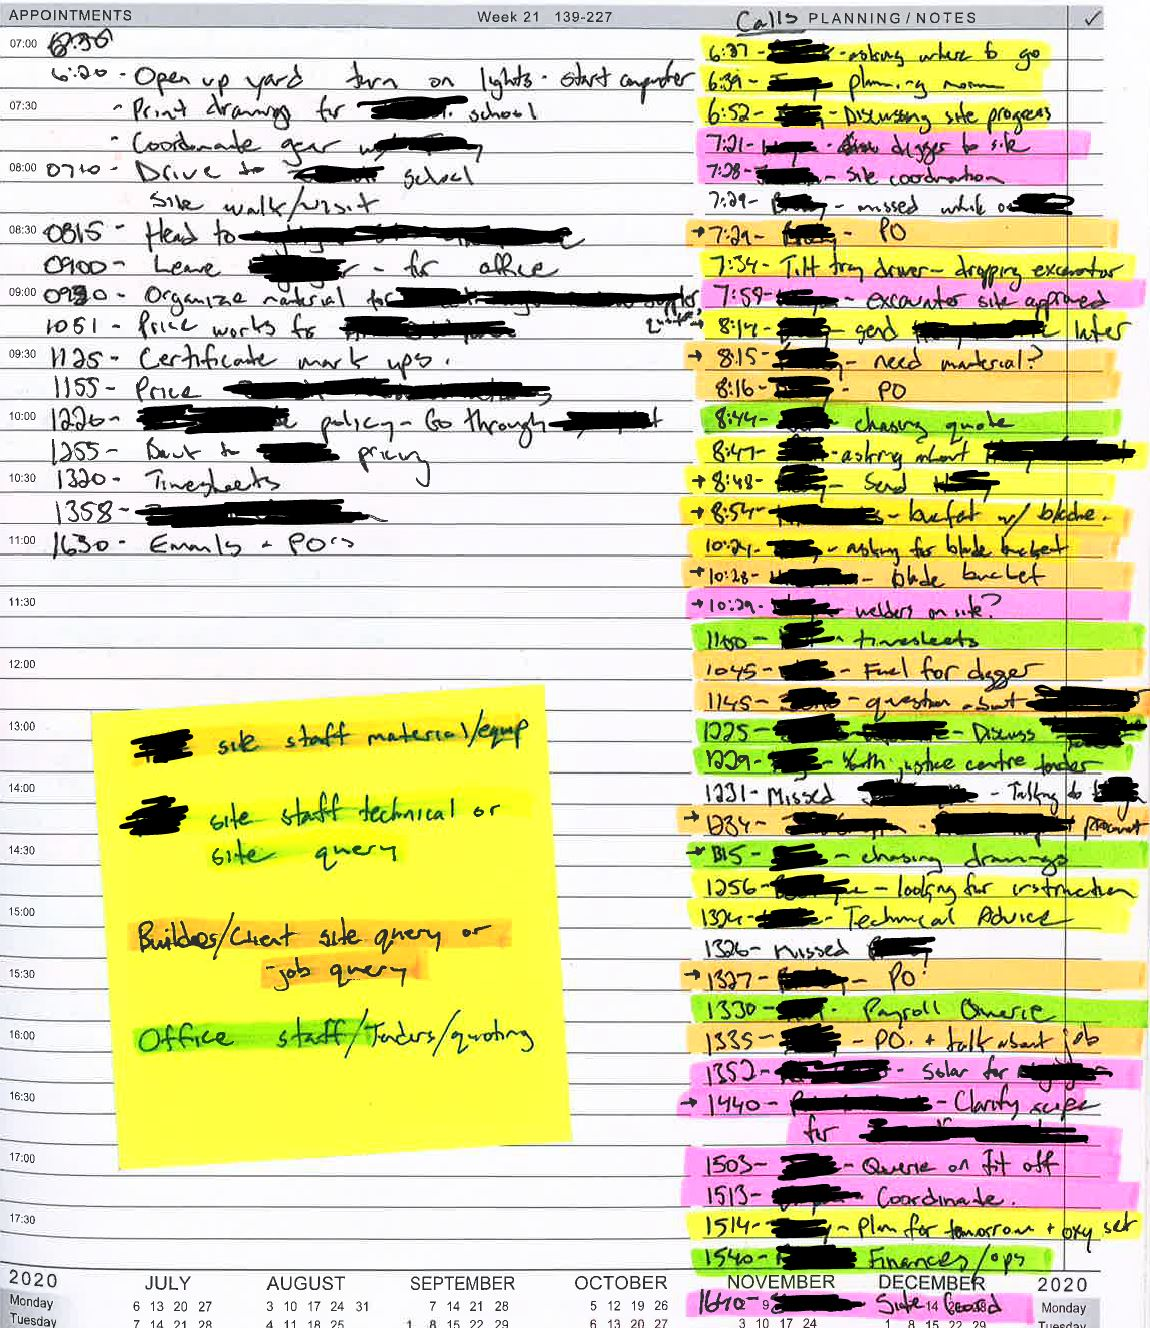 APPOINTMENTS
Week 21 139-227
Calls PLANNING / NOTES ✓
07:00
6:20 - Open up yard turn on lights - start computer
07:30
- Print drawing for school
- Coordinate gear
08:00
0710 - Drive to school
Site walk/visit
08:30
0815 - Head to
0900 - Leave - for office
09:00
Organize material for
1051 - Price works for
09:30
1125 - Certificate mark ups.
1155 - Price
10:00
1220 - policy - Go through
1255 - Back to pricing
10:30
1320 - Timesheets
1358 -
11:00
1630 - Emails + PO's
11:30
12:00
13:00
14:00
14:30
15:00
15:30
16:00
16:30
17:00
17:30
site staff material/equip
site staff technical or
site query
Builders/Client site query or
- job query
Office staff/Tenders/quoting
6:37 - - asking where to go
6:39 - planning
6:52 - - Discussing site progress
7:21 - digger to site
7:28 - - Site coordination
7:29 - - missed while on
→ 7:29 - - PO
7:34 - Tilt tray driver - dropping excavator
7:59 - - excavator site approved
→ 8:14 - - send later
→ 8:15 - - need material?
8:16 - - PO
8:44 - chasing quote
8:47 - - asking about
→ 8:48 - - Send
→ 8:54 - - bucket w/
10:24 - - asking for blade bucket
→ 10:28 - - blade bucket
→ 10:29 - - welders on site?
1100 - - timesheets
1045 - - Fuel for digger
1145 - - question about
1225 - - Discuss
1229 - - Youth justice centre tender
1231 - Missed - Talking to
→ 1234 - -
→ 1315 - - chasing drawings
1256 - - looking for instruction
1324 - - Technical Advice
1326 - Missed
→ 1327 - - PO
1330 - Payroll Querie
1335 - - PO. + talk about job
1352 - - Solar for
→ 1440 - - Clarify scope
for
1503 - - Querie on fit off
1513 - Coordinate.
1514 - - Plan for tomorrow + oxy set
1540 - Finances/ops
1640 -
2020 JULY AUGUST SEPTEMBER OCTOBER NOVEMBER DECEMBER 2020
Monday 6 13 20 27 3 10 17 24 31 7 14 21 28 5 12 19 26 2 9 Monday
Tuesday 7 14 21 28 4 11 18 25 1 8 15 22 29 6 13 20 27 3 10 17 24 1 8 15 22 29 Tuesday